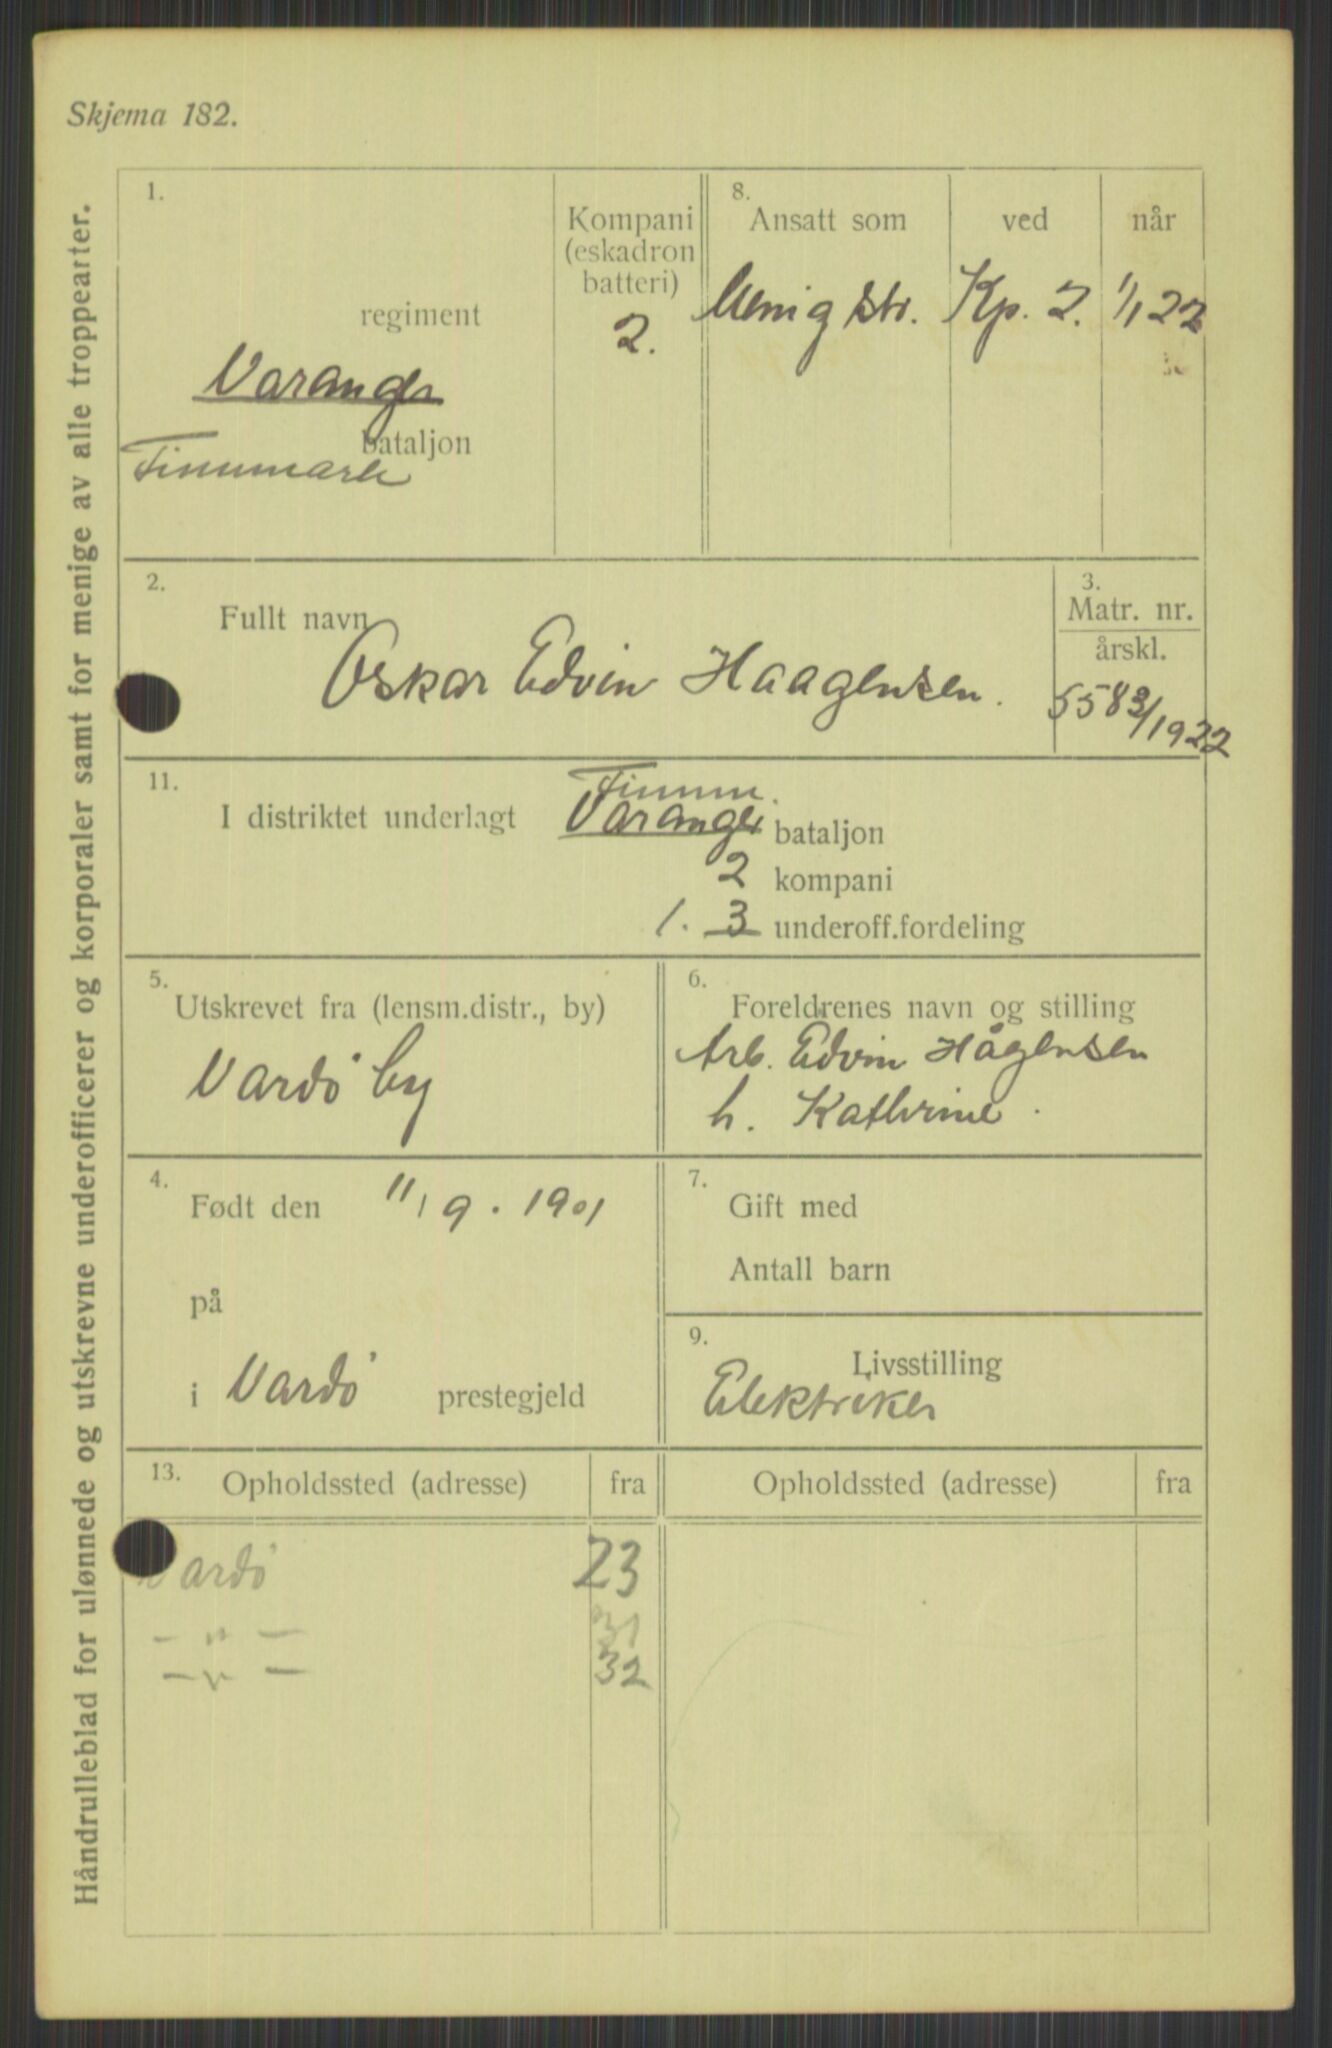 Skjema 182.
Håndrulleblad for ulønnede og utskrevne underofficerer og korporaler samt for menige av alle troppearter.
1.
regiment
Varanger
bataljon
Finnmark
Kompani
(eskadron
batteri)
2.
8.
Ansatt som
ved
når
Menig str. Kp. 2. 1/1 22
2.
Fullt navn
Oskar Edvin Haagensen.
3.
Matr. nr.
årskl.
5583/1922
11.
Finnm.
I distriktet underlagt Varanger bataljon
2 kompani
1. 3 underoff.fordeling
5.
Utskrevet fra (lensm.distr., by)
Vardö by
6.
Foreldrenes navn og stilling
Arb. Edvin Hågensen
h. Kathrine.
4.
Født den 11/9. 1901
på
i Vardö prestegjeld
7.
Gift med
Antall barn
9.
Livsstilling
Elektriker
13.
Opholdssted (adresse) fra
Opholdssted (adresse) fra
Vardö 23
— „ — 31
— „ — 32